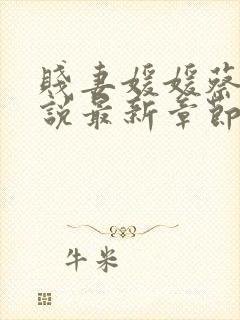 賤妻媛媛蔡
說最新章節
牛米